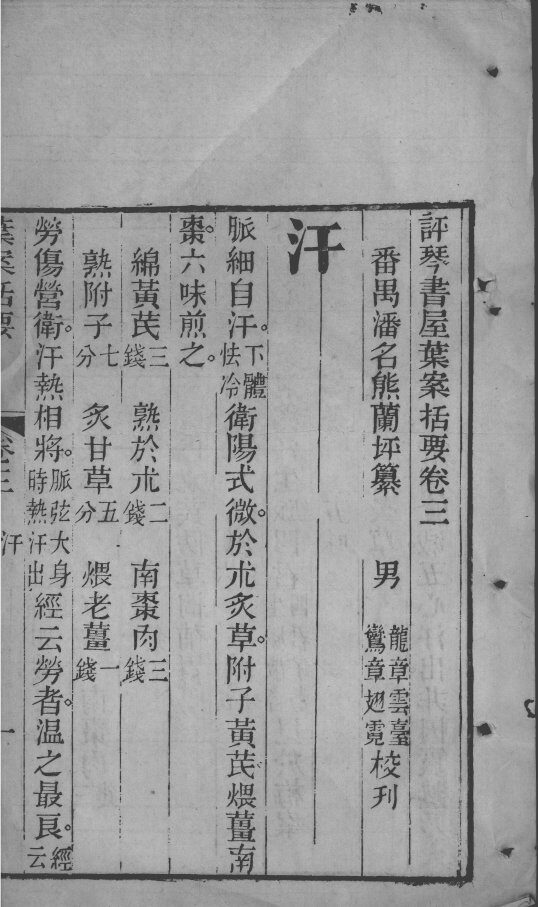 評琴書屋葉案括要卷三
番禺潘名熊蘭坪纂 男 龍章雲臺 鸞章翅霓 校刊
汗
脈細自汗。下體怯冷衛陽式微。於朮炙草。附子黃芪煨薑南
棗。六味煎之。
綿黃芪三錢 熟於朮二錢 南棗肉三錢
熟附子七分 炙甘草五分 煨老薑一錢
勞傷營衛。汗熱相將。脈弦大身時熱汗出經云勞者。温之最良。經云
葉案括要 卷三 汗 一